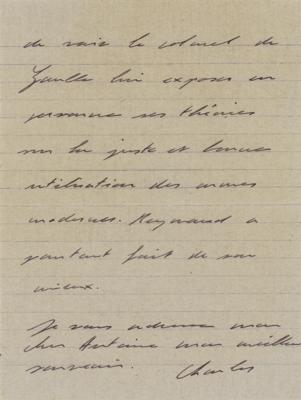 de voir le colonel de
Gaulle lui exposer en
personne ses théories
sur la juste et bonne
utilisation des armes
modernes. Reynaud a
pourtant fait de son
mieux.
Je vous adresse mon
cher Antoine mon meilleur
souvenir. Charles